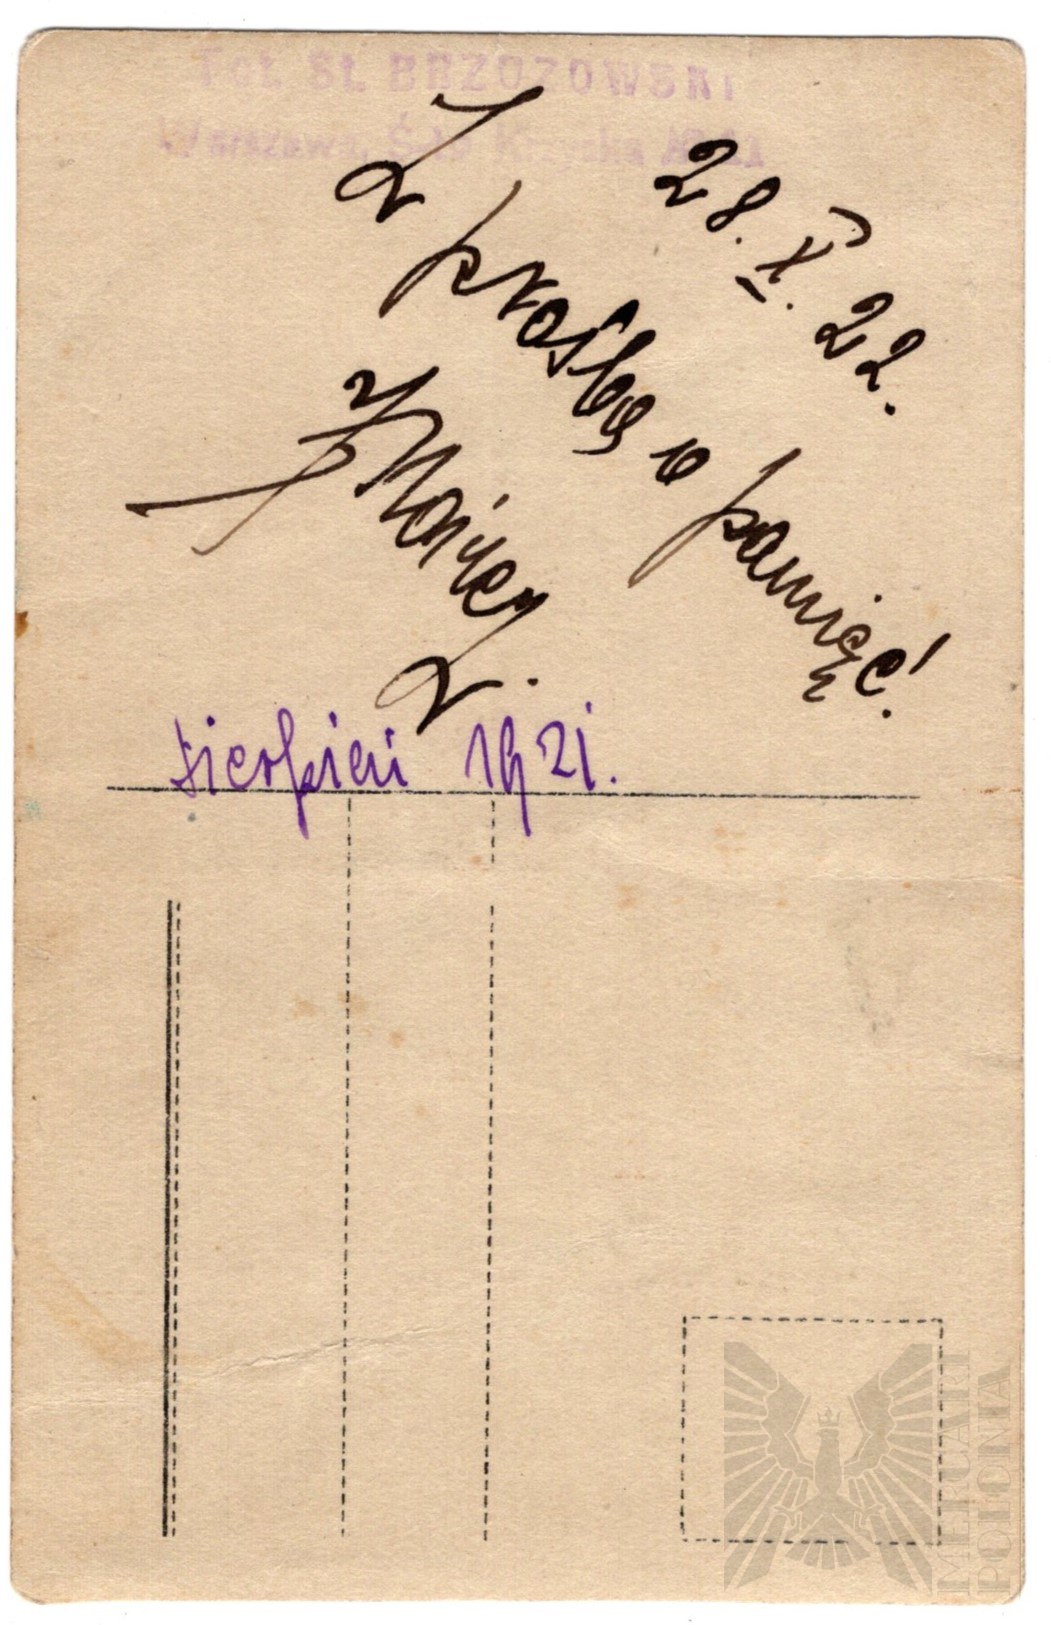 Fot. St. BRZOZOWSKI
Warszawa, Ś-to Krzyska
28. X. 22.
Z prośbą o pamięć.
sierpień 1921.
MERCARI
POLONIA